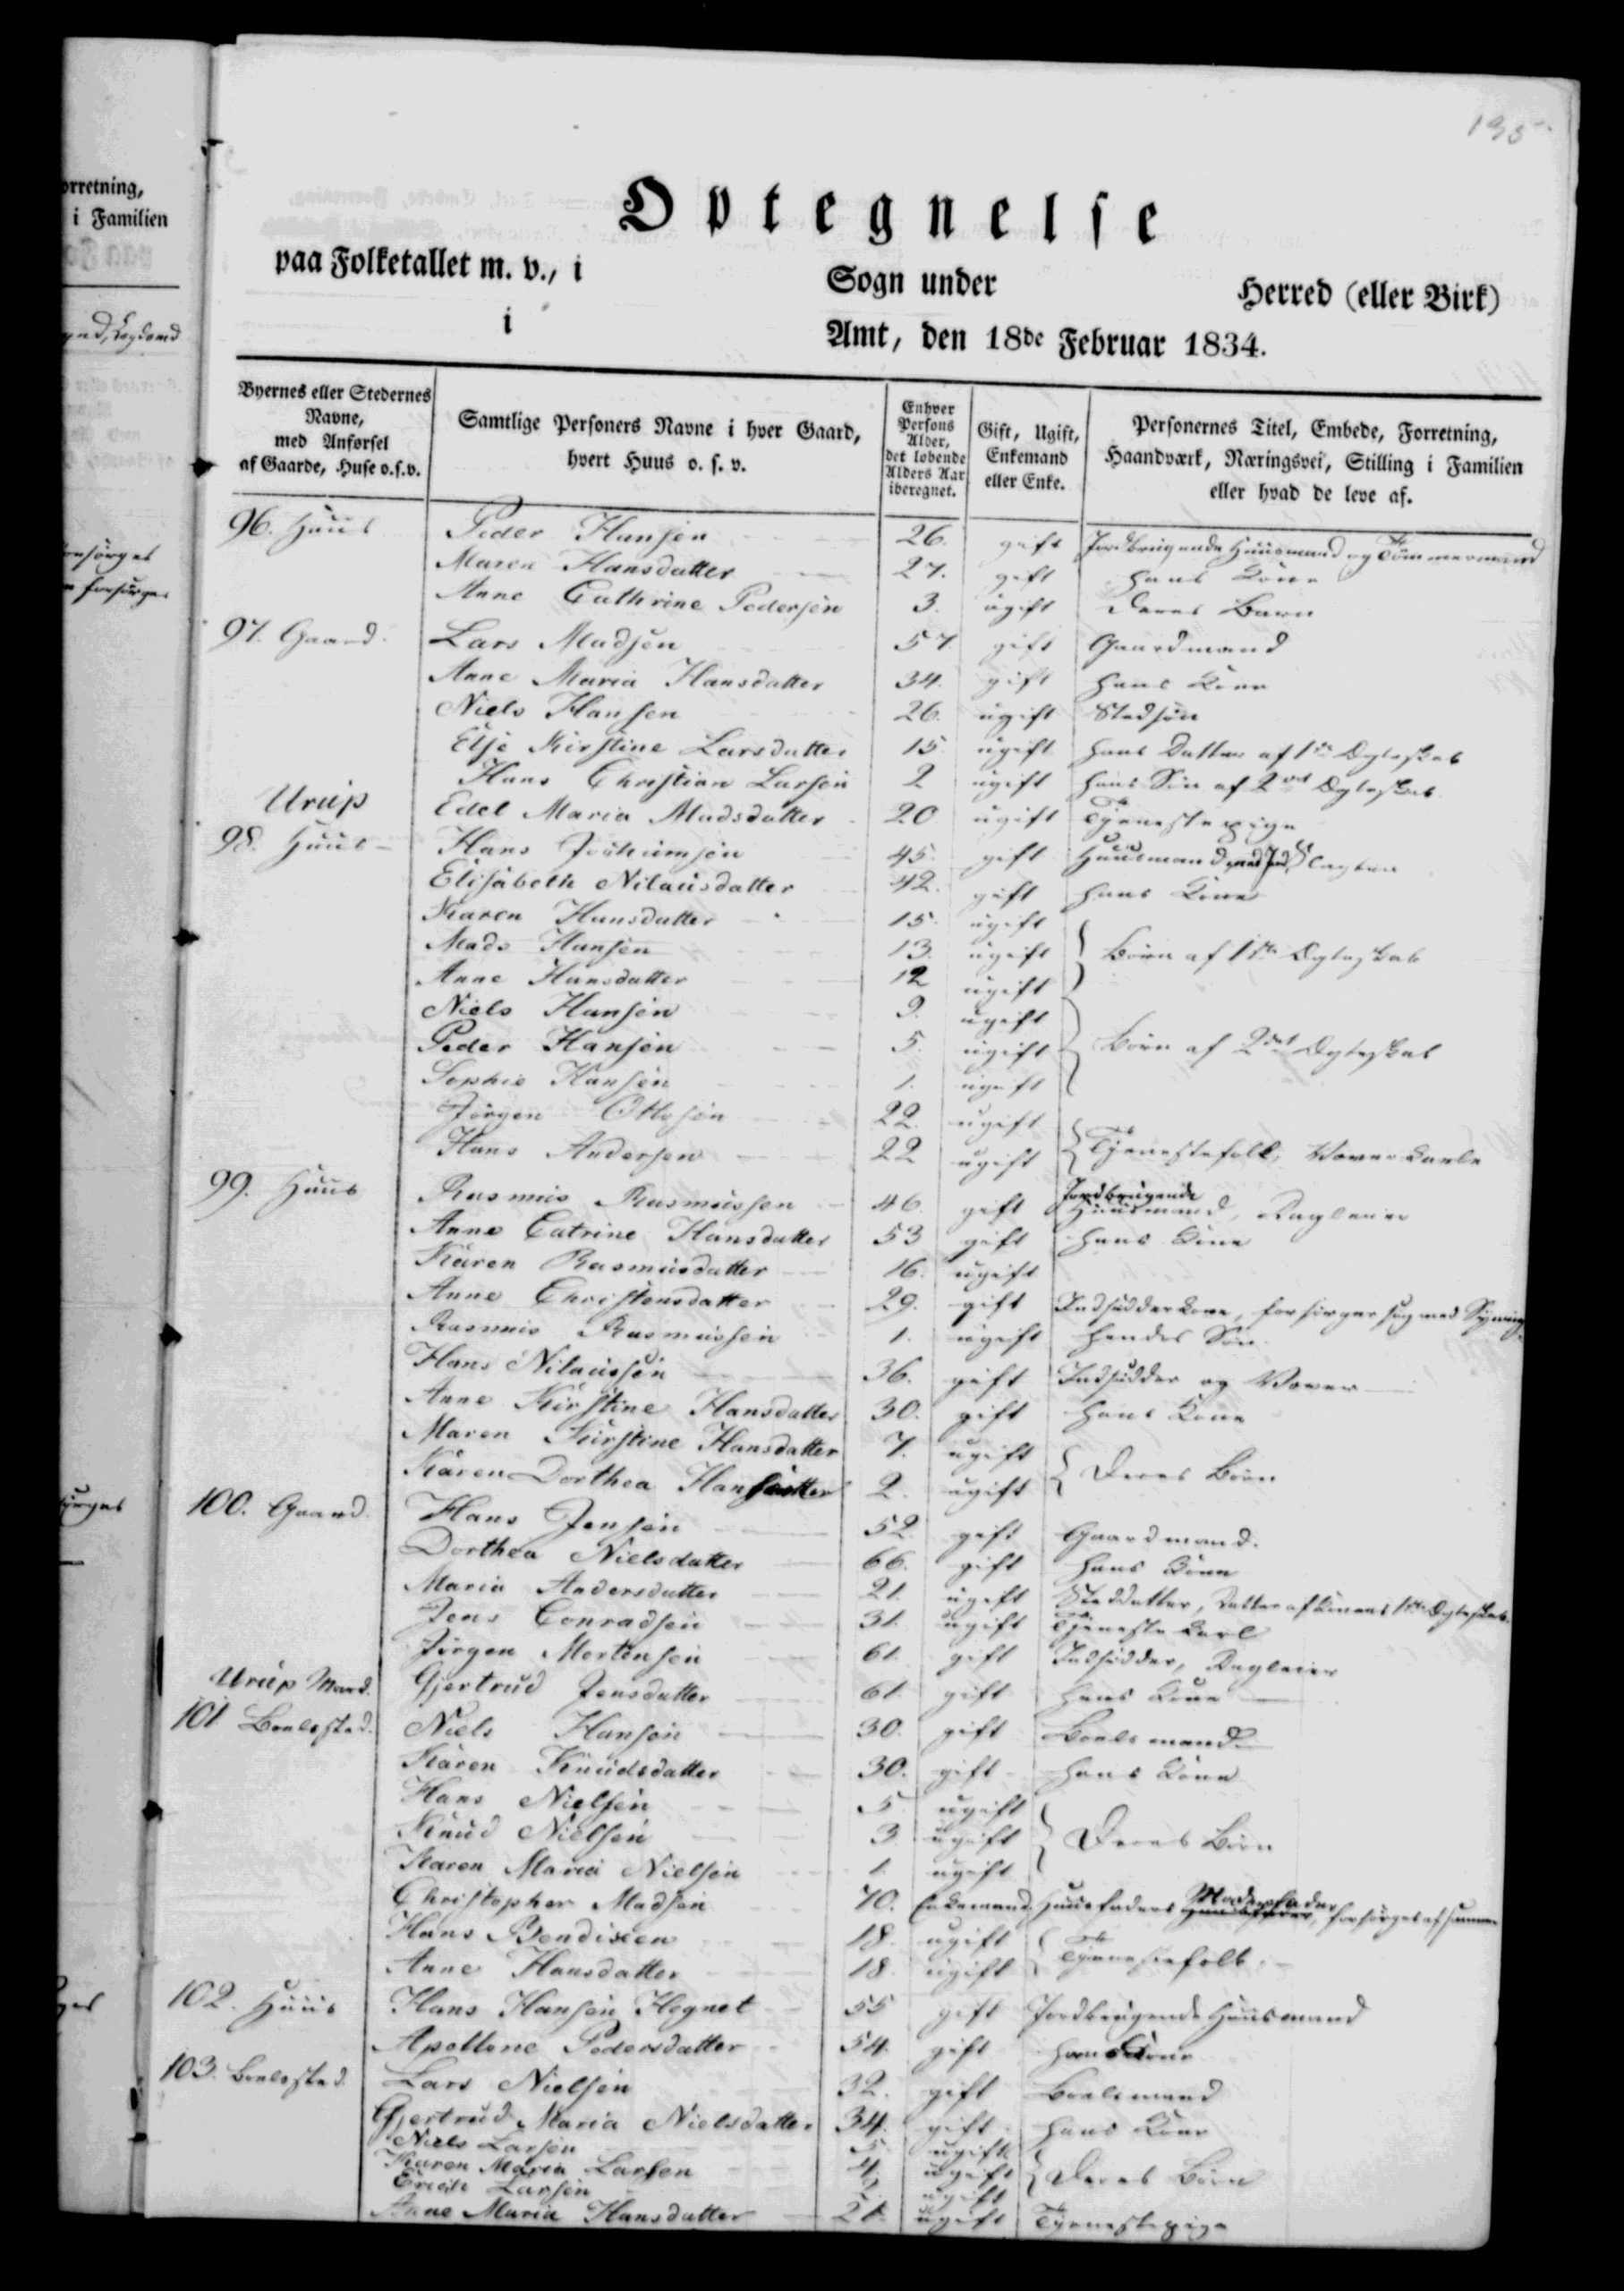 195
Optegnelse
paa Folketallet m. v., i Sogn under Herred (eller Birk)
i Amt, den 18de Februar 1834.
orretning,
i Familien
Byernes eller Stedernes Navne, med Anførsel af Gaarde, Huse o.s.v.
Samtlige Personers Navne i hver Gaard, hvert Huus o. s. v.
Enhver Persons Alder, det løbende Alders Aar iberegnet.
Gift, Ugift, Enkemand eller Enke.
Personernes Titel, Embede, Forretning, Haandværk, Næringsvei, Stilling i Familien eller hvad de leve af.
96. Huus Peder Hansen 26. gift Jordbrugende Huusmand og Tømmermand
Maren Hansdatter 27. gift hans Kone
Anne Cathrine Pedersen 3. ugift deres Barn
97. Gaard. Lars Madsen 57 gift Gaardmand
Anne Maria Hansdatter 34. gift hans Kone
Niels Hansen 26. ugift Stedsøn
Else Kirstine Larsdatter 15 ugift hans Datter af 1ste Ægteskab
Hans Christian Larsen 2 ugift hans Søn af 2det Ægteskab
Urup Edel Maria Madsdatter 20 ugift Tjenestepige
98. Huus Hans Jochumsen 45. gift Huusmand med Jord, Slagter
Elisabeth Nilausdatter 42. gift hans Kone
Karen Hansdatter 15. ugift
Mads Hansen 13. ugift Børn af 1ste Ægteskab
Anne Hansdatter 12 ugift
Niels Hansen 9. ugift
Peder Hansen 5. ugift Børn af 2det Ægteskab
Sophie Hansen 1. ugift
Jørgen Ottosen 22. ugift
Hans Andersen 22 ugift Tjenestefolk, Væverkarle
99. Huus Rasmus Rasmussen 46 gift Jordbrugende Huusmand, Dagleier
Anne Catrine Hansdatter 53 gift hans Kone
Karen Rasmusdatter 16. ugift
Anne Christensdatter 29. gift Indsidderkone, forsørger sig med Syning
Rasmus Rasmussen 1. ugift hendes Søn
Hans Nilaussen 36. gift Indsidder og Væver
Anne Kirstine Hansdatter 30. gift hans Kone
Maren Kirstine Hansdatter 7. ugift
Karen Dorthea Hansdatter 2. ugift Deres Børn
100. Gaard. Hans Jensen 52. gift Gaardmand.
Dorthea Nielsdatter 66. gift hans Kone
Maria Andersdatter 21. ugift Steddatter, Datter af Konens 1ste Ægteskab.
Jens Conradsen 31. ugift Tjenestekarl
Jørgen Mortensen 61. gift Indsidder, Dagleier
Urup Mard. Gjertrud Jensdatter 61. gift hans Kone
101 Boelssted. Niels Hansen 30. gift Boelsmand
Karen Knudsdatter 30. gift hans Kone
Hans Nielsen 5 ugift
Knud Nielsen 3 ugift Deres Børn
Karen Maria Nielsen 1. ugift
Christopher Madsen 70. Enkemand Huusfaders Moderfader, forsørges af samme
Hans Bendixen 18. ugift
Anne Hansdatter 18. ugift Tjenestefolk.
102. Huus Hans Hansen Hegnet 55 gift Jordbrugende Huusmand
Apollone Pedersdatter 54. gift hans Kone
103. Boelssted. Lars Nielsen 32. gift Boelsmand
Gjertrud Maria Nielsdatter 34. gift hans Kone
Niels Larsen 5. ugift
Karen Maria Larsen 4 ugift Deres Børn
Erich Larsen ugift
Anne Maria Hansdatter 21. ugift Tjenestepige